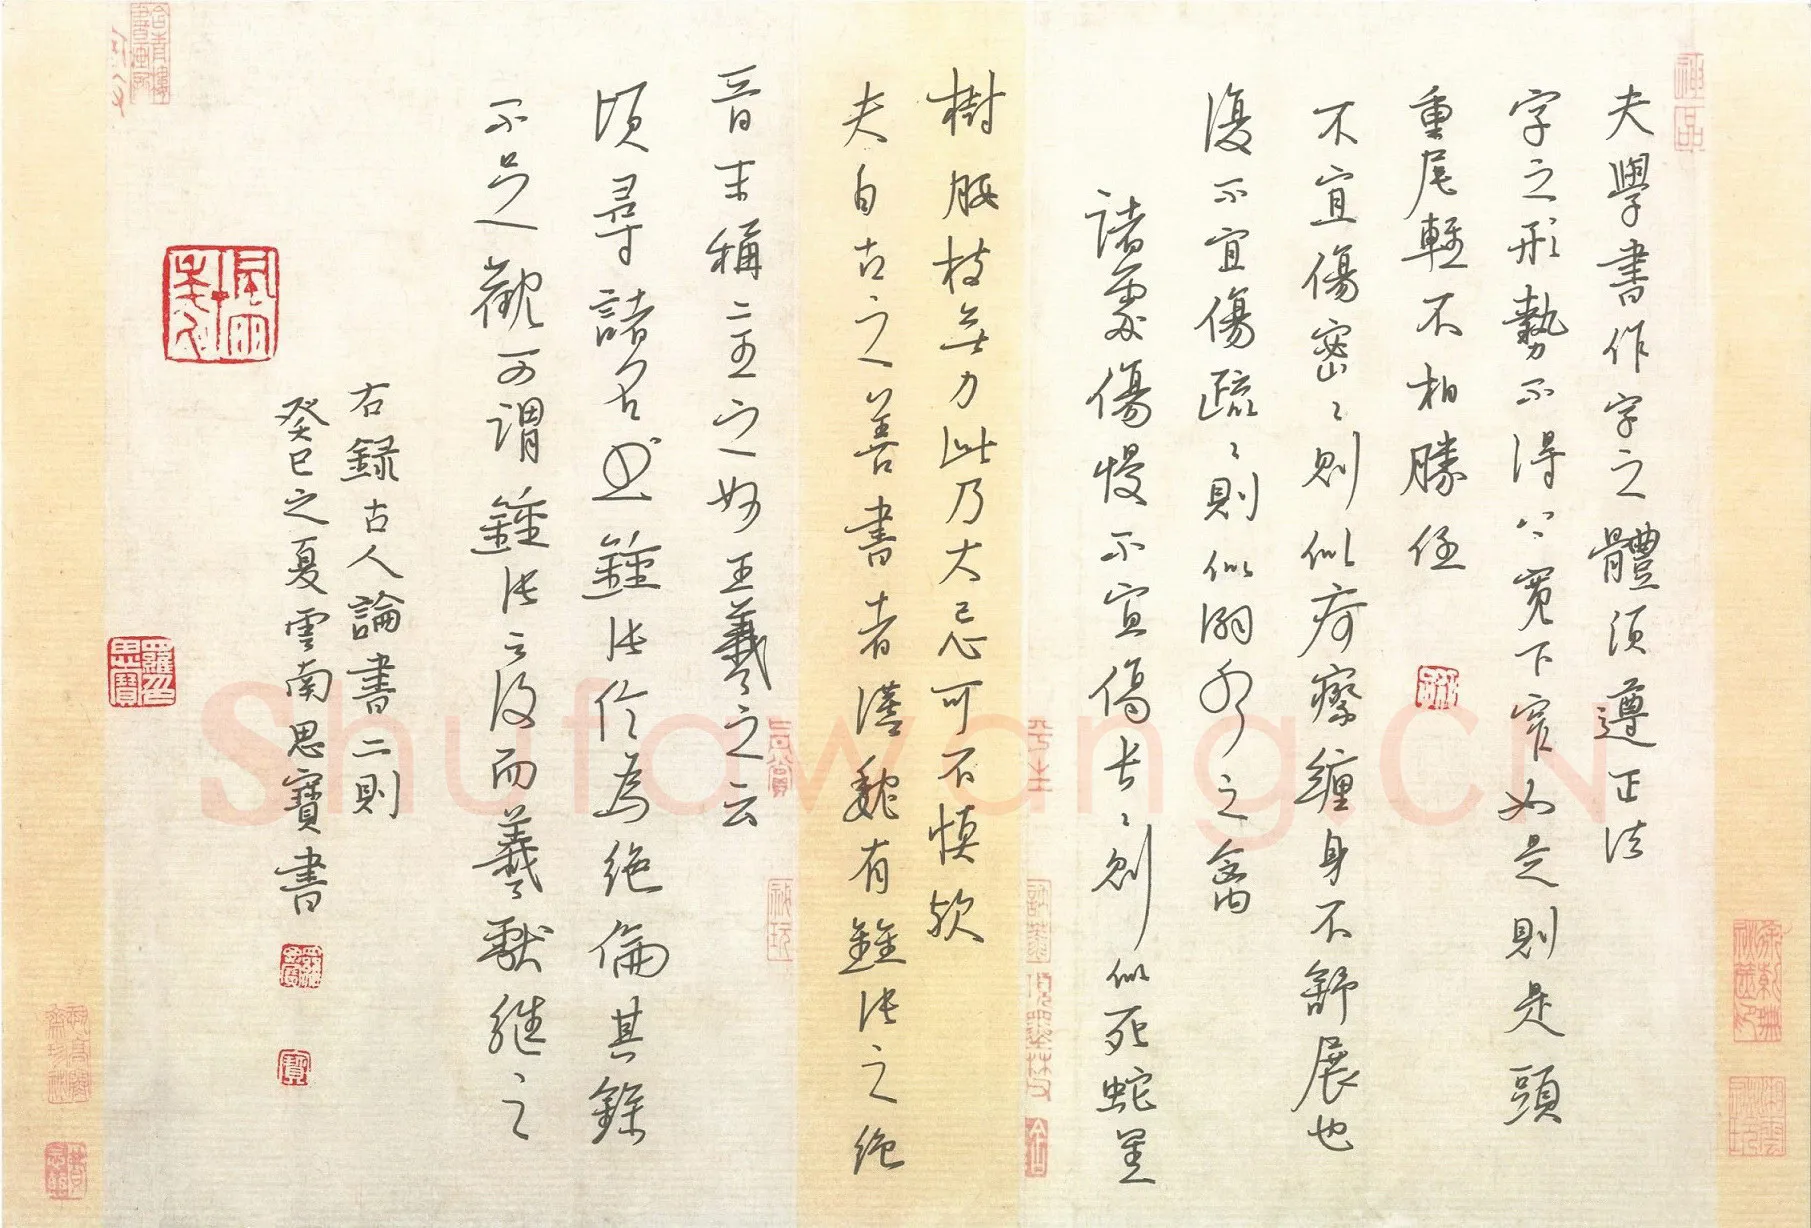 夫學書作字之體須遵正法
字之形勢不得上寬下窄如是則是頭
重尾輕不相勝任
不宜傷密〻則似疴瘵纏身不舒展也
復不宜傷疏〻則似溺水之禽
諸處傷慢不宜傷長〻則似死蛇罣
樹腰枝無力此乃大忌可不慎歟
夫自古之善書者漢魏有鍾張之絕
晉末稱二王之妙王羲之云
頃尋諸名書鍾張信為絕倫其餘
不足觀可謂鍾張云沒而羲獻繼之
右録古人論書二則
癸巳之夏雲南思寶書
神品
秘玩
Shufawang.CN